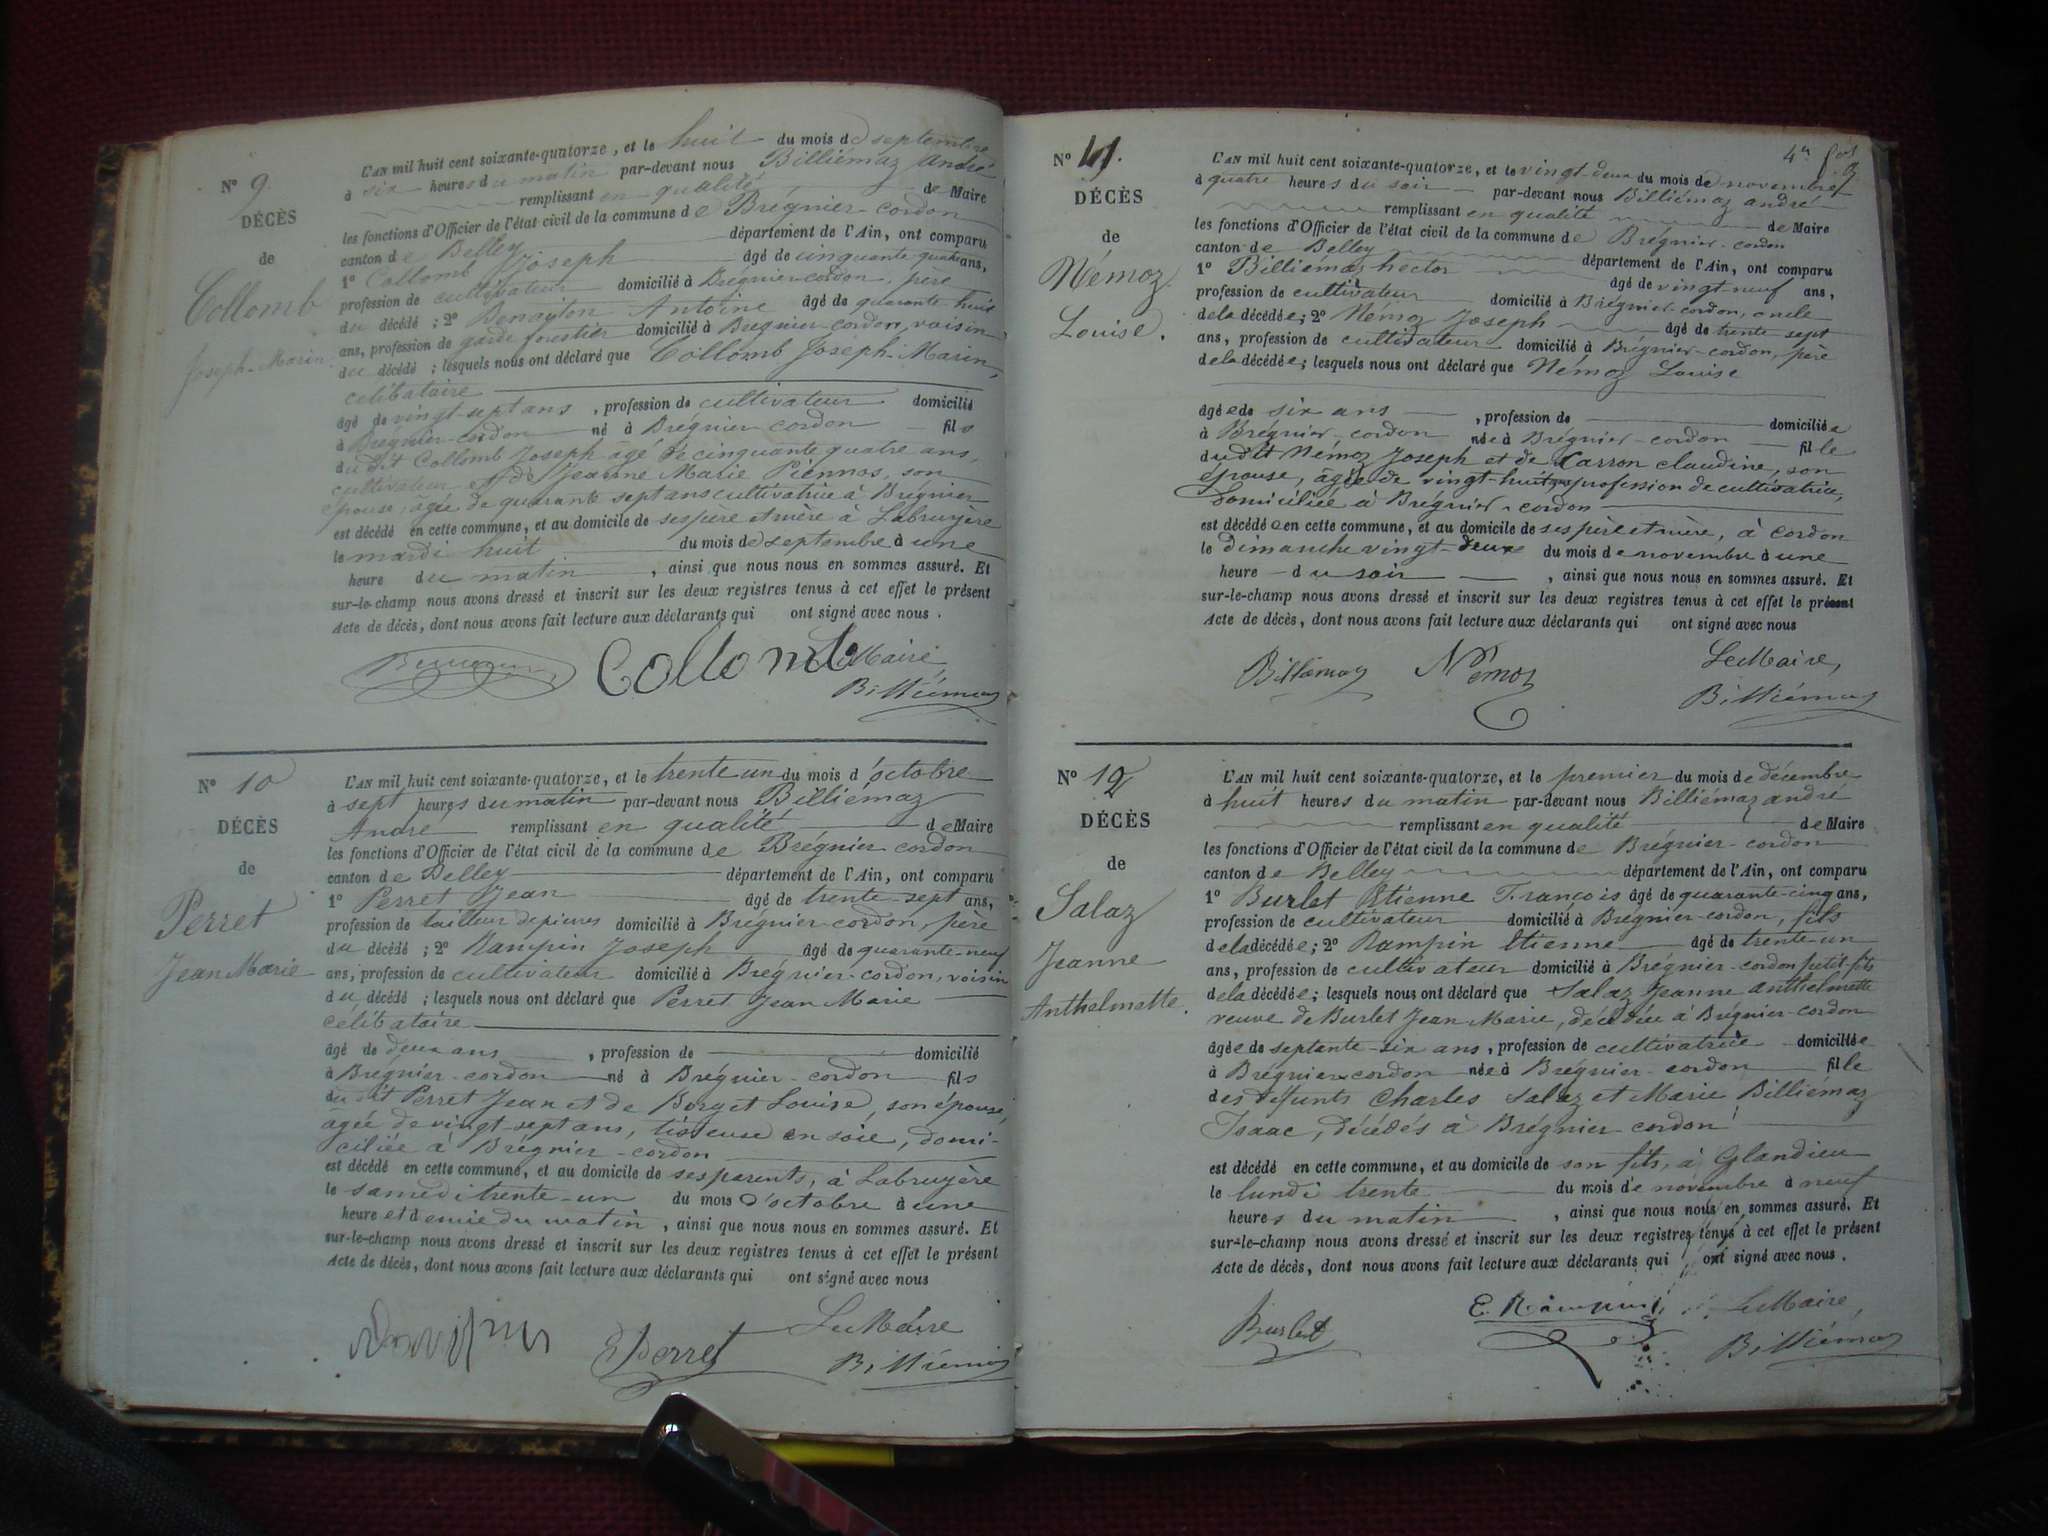 L'AN mil huit cent soixante-quatorze, et le huit du mois de septembre
à six heures du matin par-devant nous Billiémaz André
N° 9. remplissant en qualité de Maire
DÉCÈS les fonctions d'Officier de l'état civil de la commune de Brégnier-cordon
de canton de Belley département de l'Ain, ont comparu
1° Collomb Joseph âgé de cinquante quatre ans,
Collomb profession de cultivateur domicilié à Brégnier-cordon, père
du décédé ; 2° Antoine âgé de quarante-huit
Joseph-Marin ans, profession de garde forestier domicilié à Brégnier-cordon, voisin
du décédé ; lesquels nous ont déclaré que Collomb Joseph-Marin,
célibataire
âgé de vingt-sept ans , profession de cultivateur domicilié
à Brégnier-cordon né à Brégnier-cordon fils
du dit Collomb Joseph âgé de cinquante quatre ans,
cultivateur et de Jeanne Marie son
épouse, âgée de quarante sept ans cultivatrice à Brégnier
est décédé en cette commune, et au domicile de ses père et mère à Labruyère
le mardi huit du mois de septembre à une
heure du matin , ainsi que nous nous en sommes assuré. Et
sur-le-champ nous avons dressé et inscrit sur les deux registres tenus à cet effet le présent
Acte de décès, dont nous avons fait lecture aux déclarants qui ont signé avec nous .
Collomb Le Maire,
Billiémaz
N° 10 L'AN mil huit cent soixante-quatorze, et le trente un du mois d'octobre
à sept heures du matin par-devant nous Billiémaz
DÉCÈS André remplissant en qualité de Maire
les fonctions d'Officier de l'état civil de la commune de Brégnier cordon
de canton de Belley département de l'Ain, ont comparu
1° Perret Jean âgé de trente-sept ans,
Perret profession de tailleur de pierres domicilié à Brégnier-cordon, père
du décédé ; 2° Rampin Joseph âgé de quarante-neuf
Jean Marie ans, profession de cultivateur domicilié à Brégnier-cordon, voisin
du décédé ; lesquels nous ont déclaré que Perret Jean Marie
célibataire
âgé de deux ans , profession de domicilié
à Brégnier-cordon né à Brégnier-cordon fils
du dit Perret Jean et de Borget Louise, son épouse,
âgée de vingt-sept ans, tisseuse en soie, domi-
ciliée à Brégnier-cordon
est décédé en cette commune, et au domicile de ses parents, à Labruyère
le samedi trente-un du mois d'octobre à une
heure et demie du matin , ainsi que nous nous en sommes assuré. Et
sur-le-champ nous avons dressé et inscrit sur les deux registres tenus à cet effet le présent
Acte de décès, dont nous avons fait lecture aux déclarants qui ont signé avec nous
Perret Le Maire
Billiémaz
4e
N° 11. L'AN mil huit cent soixante-quatorze, et le vingt-deux du mois de novembre
à quatre heures du soir par-devant nous Billiémaz andré
DÉCÈS remplissant en qualité de Maire
les fonctions d'Officier de l'état civil de la commune de Brégnier-cordon
de canton de Belley département de l'Ain, ont comparu
1° Billiémaz hector âgé de vingt-neuf ans,
Némoz profession de cultivateur domicilié à Brégnier-cordon, oncle
de la décédée ; 2° Némoz Joseph âgé de trente sept
Louise. ans, profession de cultivateur domicilié à Brégnier-cordon, père
de la décédée ; lesquels nous ont déclaré que Némoz Louise
âgée de six ans , profession de domiciliée
à Brégnier-cordon née à Brégnier-cordon fille
du dit Némoz Joseph et de Carron claudine, son
épouse, âgée de vingt-huit ans profession de cultivatrice,
domiciliée à Brégnier-cordon
est décédée en cette commune, et au domicile de ses père et mère, à cordon
le dimanche vingt-deux du mois de novembre à une
heure du soir , ainsi que nous nous en sommes assuré. Et
sur-le-champ nous avons dressé et inscrit sur les deux registres tenus à cet effet le présent
Acte de décès, dont nous avons fait lecture aux déclarants qui ont signé avec nous
Némoz Le Maire,
Billiémaz
N° 12 L'AN mil huit cent soixante-quatorze, et le premier du mois de décembre
à huit heures du matin par-devant nous Billiémaz andré
DÉCÈS remplissant en qualité de Maire
les fonctions d'Officier de l'état civil de la commune de Brégnier-cordon
de canton de Belley département de l'Ain, ont comparu
1° Burlet Etienne François âgé de quarante-cinq ans,
Salaz profession de cultivateur domicilié à Brégnier-cordon, fils
de la décédée ; 2° Rampin Etienne âgé de trente-un
Jeanne ans, profession de cultivateur domicilié à Brégnier-cordon petit-fils
de la décédée ; lesquels nous ont déclaré que Salaz Jeanne anthelmette
Anthelmette. veuve de Burlet Jean Marie, décédée à Brégnier-cordon
âgée de septante-six ans , profession de cultivatrice domiciliée
à Brégnier-cordon née à Brégnier-cordon fille
des défunts Charles Salaz et Marie Billiémaz
Isaac, décédés à Brégnier-cordon
est décédé en cette commune, et au domicile de son fils, à Glandieu
le lundi trente du mois de novembre à neuf
heures du matin , ainsi que nous nous en sommes assuré. Et
sur-le-champ nous avons dressé et inscrit sur les deux registres tenus à cet effet le présent
Acte de décès, dont nous avons fait lecture aux déclarants qui ont signé avec nous .
Burlet E. Rampin Le Maire,
Billiémaz